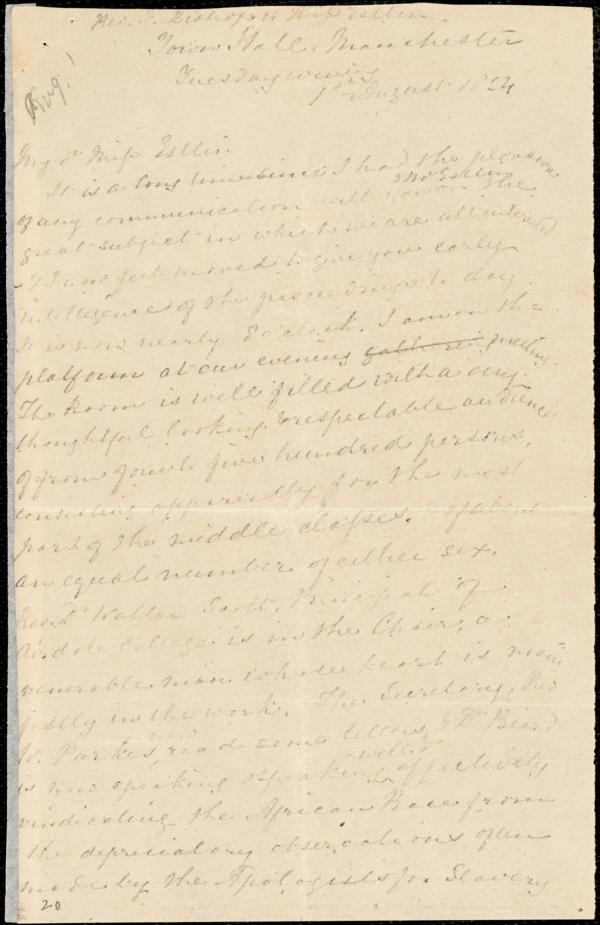 Rev. F. Bishop to Miss Estlin.
Town Hall, Manchester
Tuesday evening
1st August 1854
Aug!
My dr Miss Estlin
It is a long time since I had the pleasure
of any communication with you on the
& Mr Estlin
great subject in which we are all interested
I now feel moved to give you early
intelligence of the proceedings to day.
It is now nearly 8 o'clock. I am on the
platform at our evening gathering meeting.
The Room is well filled with a very
thoughtful looking & respectable audience
of from four to five hundred persons,
consisting apparently for the most
part of the middle classes, & of about
an equal number of either sex.
Revd Dr Walter Scott, Principal of
Airdale College is in the Chair, a
venerable man whose heart is mani
festly in the work. The Secretary, Rev
W. Parkes, read some letters, & Dr Beard
is now speaking & speaking well & effectively
vindicating the African Race from
the depreciatory observations often
made by the Apologists for Slavery
20